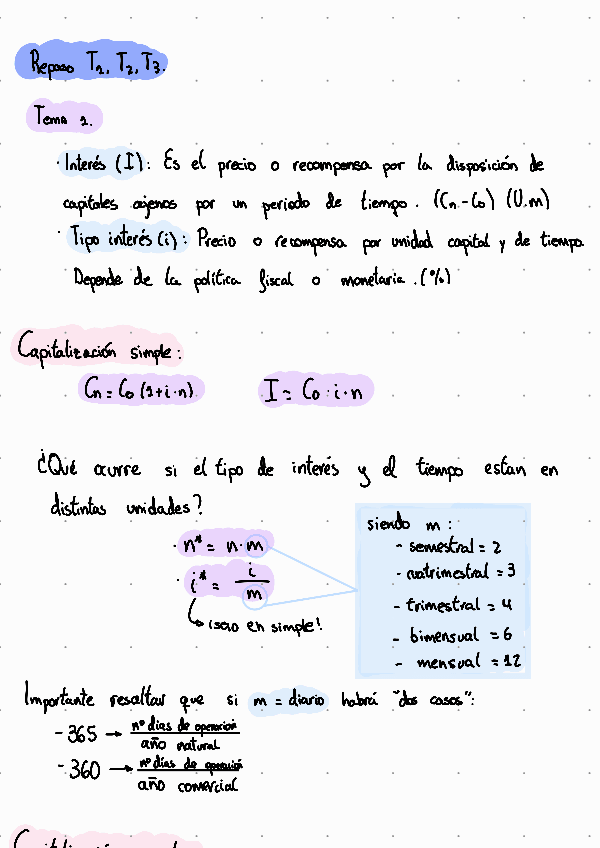 Repaso T1, T2, T3.
Tema 1.
· Interés (I): Es el precio o recompensa por la disposición de
capitales ajenos por un periodo de tiempo. (Cn - C0) (U.m)
· Tipo interés (i): Precio o recompensa por unidad capital y de tiempo
Depende de la política fiscal o monetaria. (%)
Capitalización simple:
Cn = C0 (1+i·n) I = C0·i·n
¿Qué ocurre si el tipo de interés y el tiempo estan en
distintas unidades?
· n* = n·m
· i* = i/m
↳ ¡solo en simple!
siendo m:
- semestral = 2
- cuatrimestral = 3
- trimestral = 4
- bimensual = 6
- mensual = 12
Importante resaltar que si m = diario habrá "dos casos":
- 365 → nº días de operación / año natural
- 360 → nº días de operación / año comercial